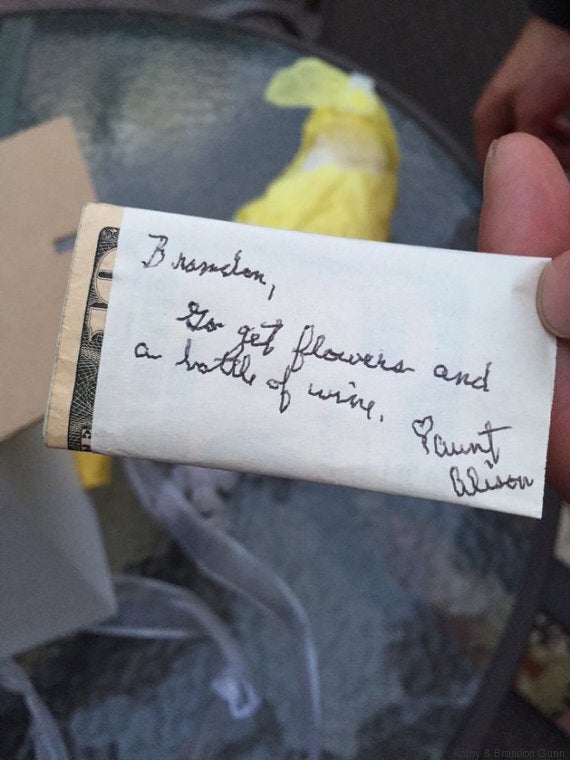 Brandon,
Go get flowers and
a bottle of wine.
♡ Aunt
Alison
Kathy & Brandon Gunn